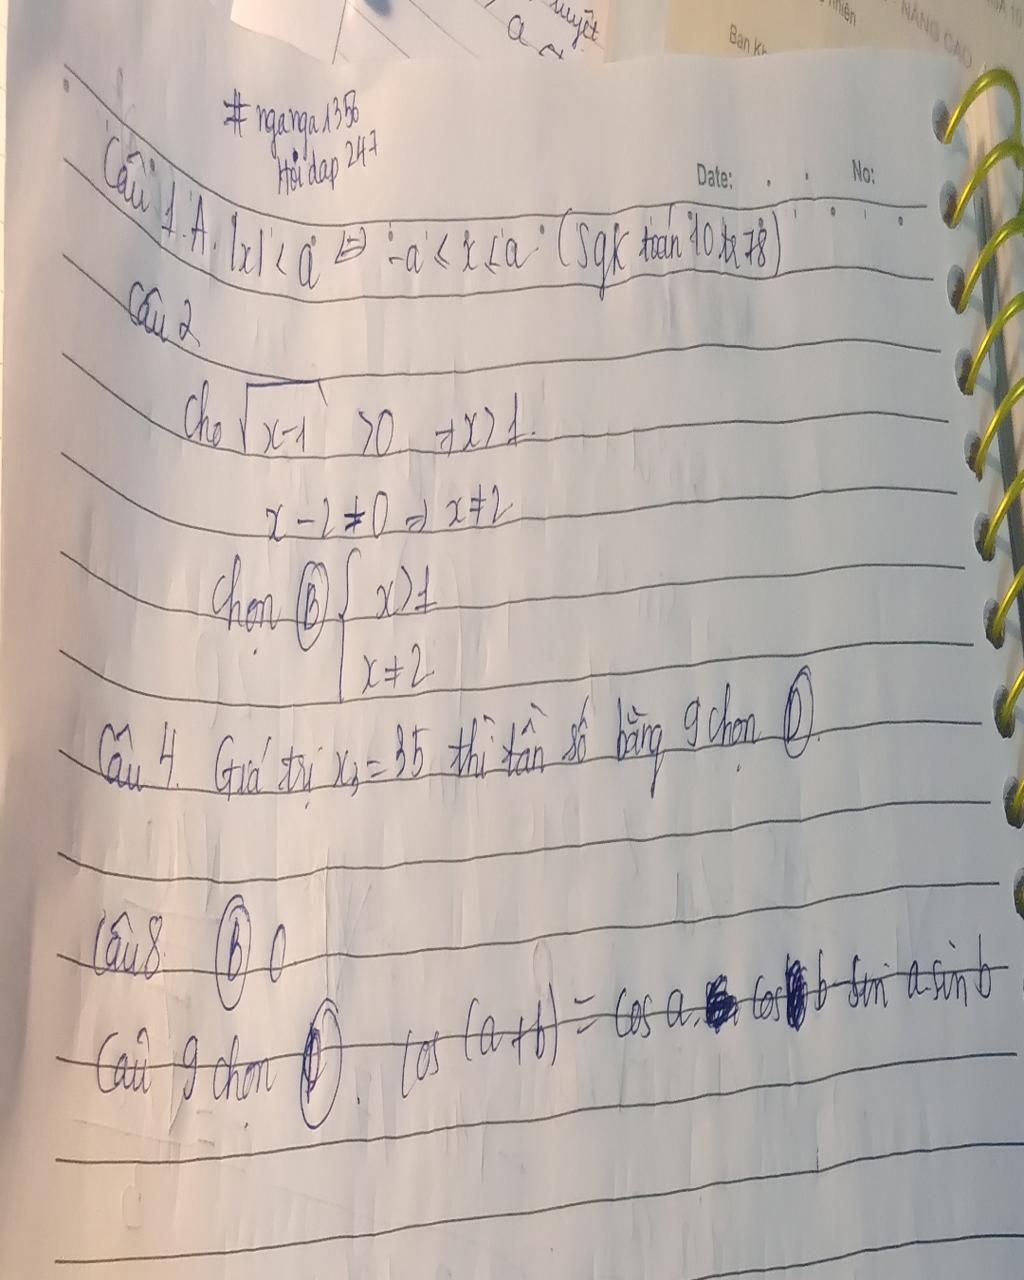 uyết
a
Ban Kh
nhiên
NÂNG CAO
#nganga1356
Hỏi đap 247
Date: . . No:
Câu 1. A. |x| < a ⇔ -a ≤ x ≤ a (SGK toán 10 tr 78)
Câu 2
Cho √x-1 >0 → x>1.
x - 2 ≠ 0 ⇒ x ≠ 2
Chọn B { x>1
x ≠ 2
Câu 4. Giá trị x₃ = 35 thì tần số bằng 9 chọn D.
Câu 8 B 0
Câu 9 chọn D. cos (a+b) = cos a. cos b - sin a. sin b